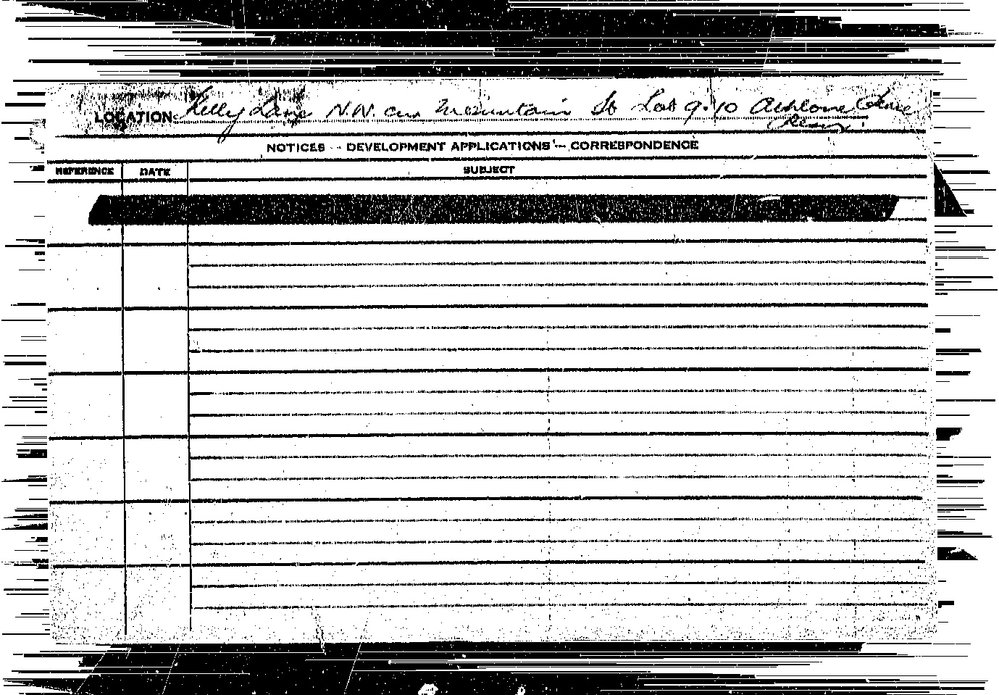 LOCATION: Kelly Lane N.W. cnr Mountain St Lot 9-10
NOTICES -- DEVELOPMENT APPLICATIONS -- CORRESPONDENCE
REFERENCE DATE SUBJECT